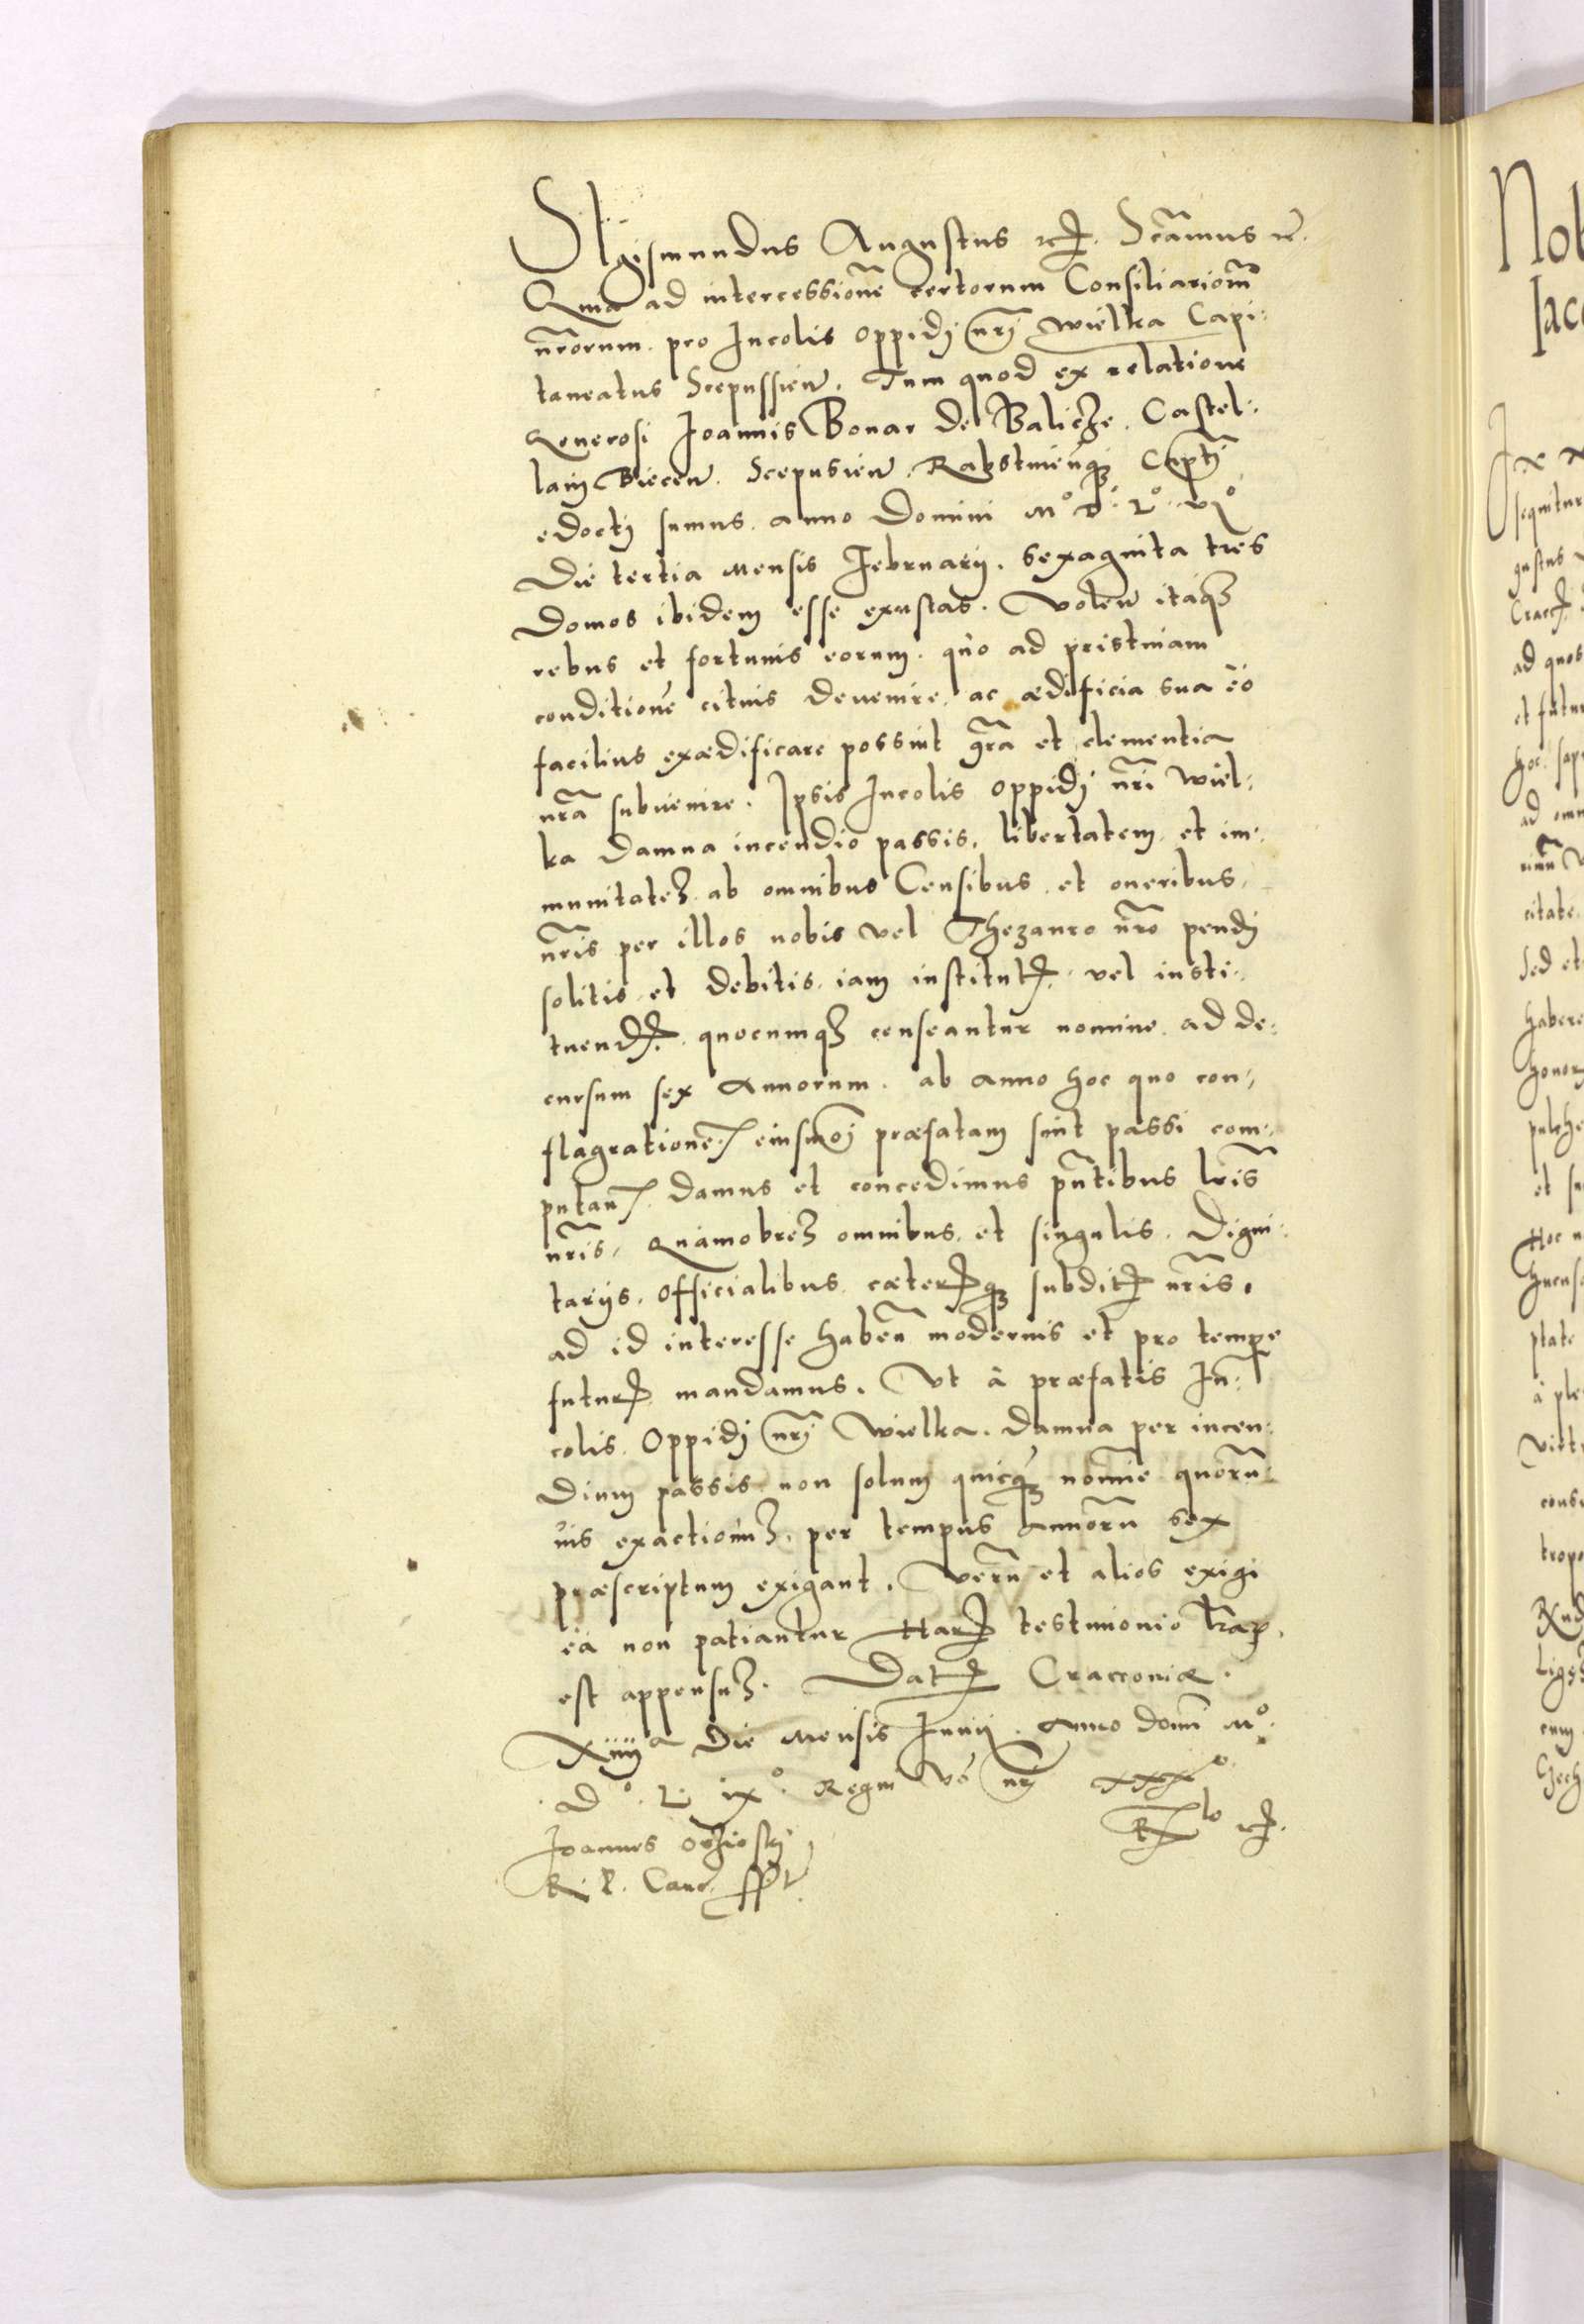 Sigismundus Augustus etc. Scāmus etc.
Quia ad intercessionē certorum Consiliariorū
nrōrum pro Incolis oppidj nrj wielka Capi:
taneatus Scepussień. Tum quod ex relatione
Generosi Joannis Bonar de Balicze. Castel:
lanj Biecen. Scepusień. Rabstinēnq3 Capti
edocti sumus. anno Domini Mo Do Lo vjo
Die tertia Mensis Februarij. sexaginta tres
Domos ibidem esse exustas. Volen itaq3
rebus et fortunis eorum. quo ad pristinam
conditionē citius deuenire. ac ædificia sua eo
facilius exædificare possint grā et clementia
nrā subuenire. Ipsis Incolis oppidj nrī Wiel:
ka damna incendio passis, libertatem et im:
munitate3 ab omnibus Censibus et oneribus
nrīs per illos nobis vel Thezauro nrō pendj
solitis et debitis. iam institut. vel insti:
tuend. quocumq3 censeantur nomine ad de:
cursum sex Annorum. ab anno hoc quo con:
flagrationē eiusmōj præfatam sint passi com:
putan. damus et concedimus pñtibus lrīs
nrīs, Quamobre3 omnibus et singulis. Digni:
tarijs. Officialibus cæterisq3 subditis nrīs.
ad id interesse habeñ modernis et pro tempe
futuris mandamus. Ut à præfatis In:
colis Oppidj nrj Wielka. damna per incen:
dium passis non solum quicq3 nomīe quorū
uis exactionu3. per tempus annorū sex
præscriptum exigant. Verū et alios exigi
ea non patiantur Har testimonio lrar.
est appensu3. Dat Cracouiæ.
Xiiij a Die Mensis Junij. Anno Domī Mo
Do. L ixo. Regni vo nrj xxxo
Joannes Oczieski
R. P. Canc. sspt